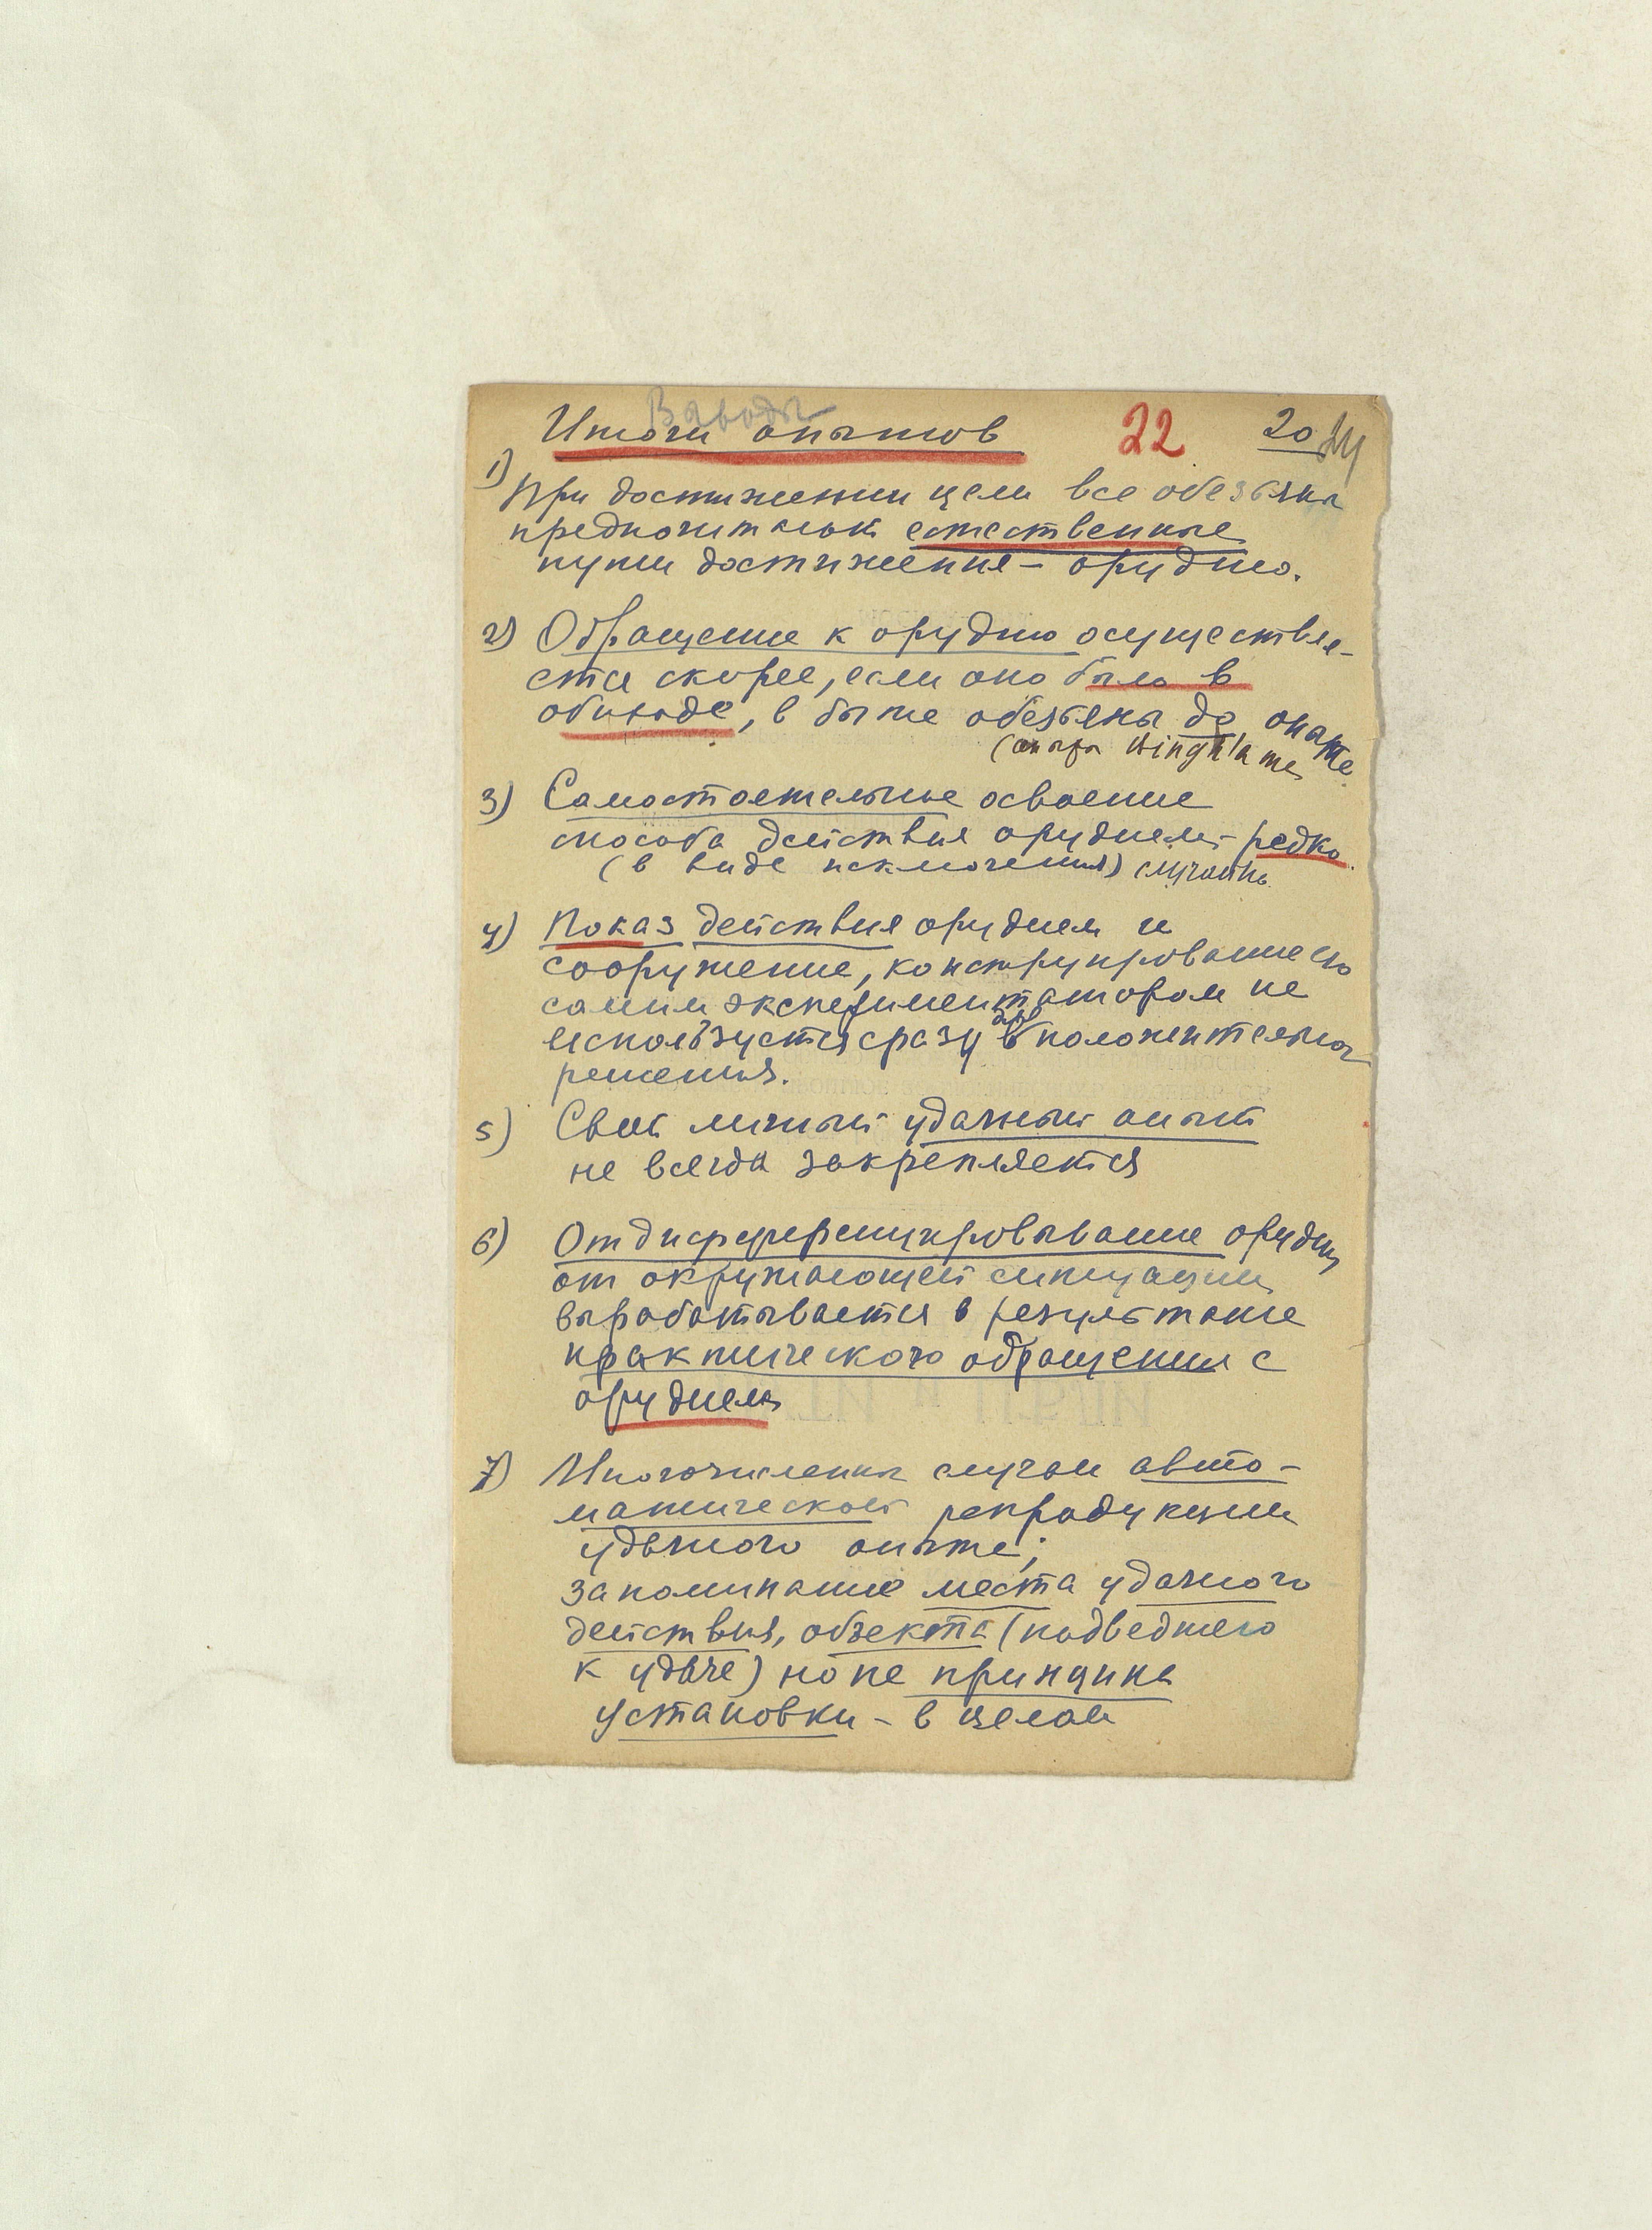 Выводы
Итоги опытов 22 20
1) При достижении цели все обезьяны
предпочитают естественные
пути достижения – орудию.
2) Обращение к орудию осуществля-
ется скорее, если оно было в
обиходе, в быте обезьяны до опыта
3) Самостоятельное освоение
способа действия орудием – редко
(в виде исключения) случайно
4) Показ действия орудием и
сооружение, конструирование его
самим экспериментатором не
используется сразу для положительного
решения.
5) Свой личный удачный опыт
не всегда закрепляется
6) Отдифференцировывание орудия
от окружающей ситуации
вырабатывается в результате
практического обращения с
орудием
7) Многочисленны случаи авто-
матической репродукции
удачного опыта;
запоминание места удачного
действия, объекта (подведшего
к удаче) но не принципа
установки – в целом